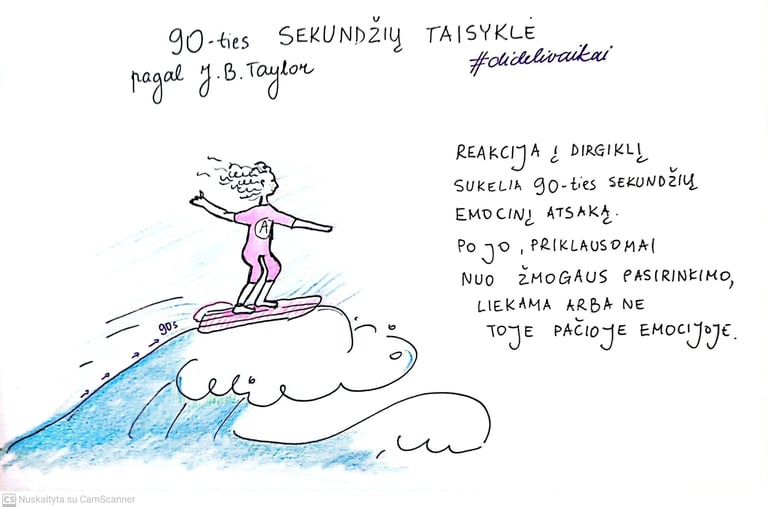 90-ties SEKUNDŽIŲ TAISYKLĖ
pagal J.B.Taylor
#didelivaikai
REAKCIJA Į DIRGIKLĮ
SUKELIA 90-ties SEKUNDŽIŲ
EMOCINĮ ATSAKĄ.
PO JO, PRIKLAUSOMAI
NUO ŽMOGAUS PASIRINKIMO,
LIEKAMA ARBA NE
TOJE PAČIOJE EMOCIJOJE.
A
90s
CS Nuskaityta su CamScanner